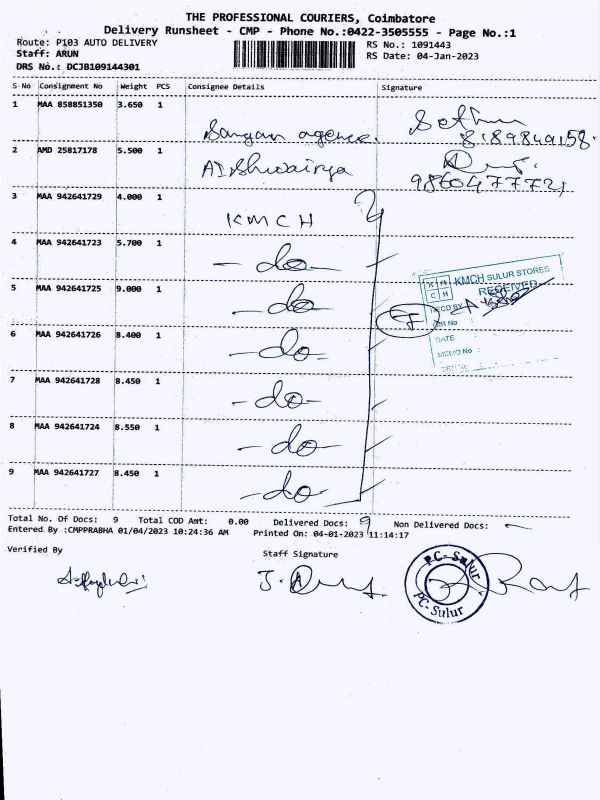 THE PROFESSIONAL COURIERS, Coimbatore
Delivery Runsheet - CMP - Phone No.:0422-3505555 - Page No.:1
Route: P103 AUTO DELIVERY
RS No.: 1091443
Staff: ARUN
RS Date: 04-Jan-2023
DRS No.: DCJB109144301
S No Consignment No Weight PCS Consignee Details Signature
1 MAA 858851350 3.650 1
8189849158
2 AMD 25817178 5.500 1
3 MAA 942641729 4.000 1 KMCH
4 MAA 942641723 5.700 1 -do-
5 MAA 942641725 9.000 1 -do-
KMCH SULUR STORES
RECEIVED
RECD BY
DATE
MEMO No :
6 MAA 942641726 8.400 1 -do-
7 MAA 942641728 8.450 1 -do-
8 MAA 942641724 8.550 1 -do-
9 MAA 942641727 8.450 1 -do-
Total No. Of Docs: 9 Total COD Amt: 0.00 Delivered Docs: 9 Non Delivered Docs: -
Entered By :CMPPRABHA 01/04/2023 10:24:36 AM Printed On: 04-01-2023 11:14:17
Verified By
Staff Signature
PC-Sulur
PC-Sulur